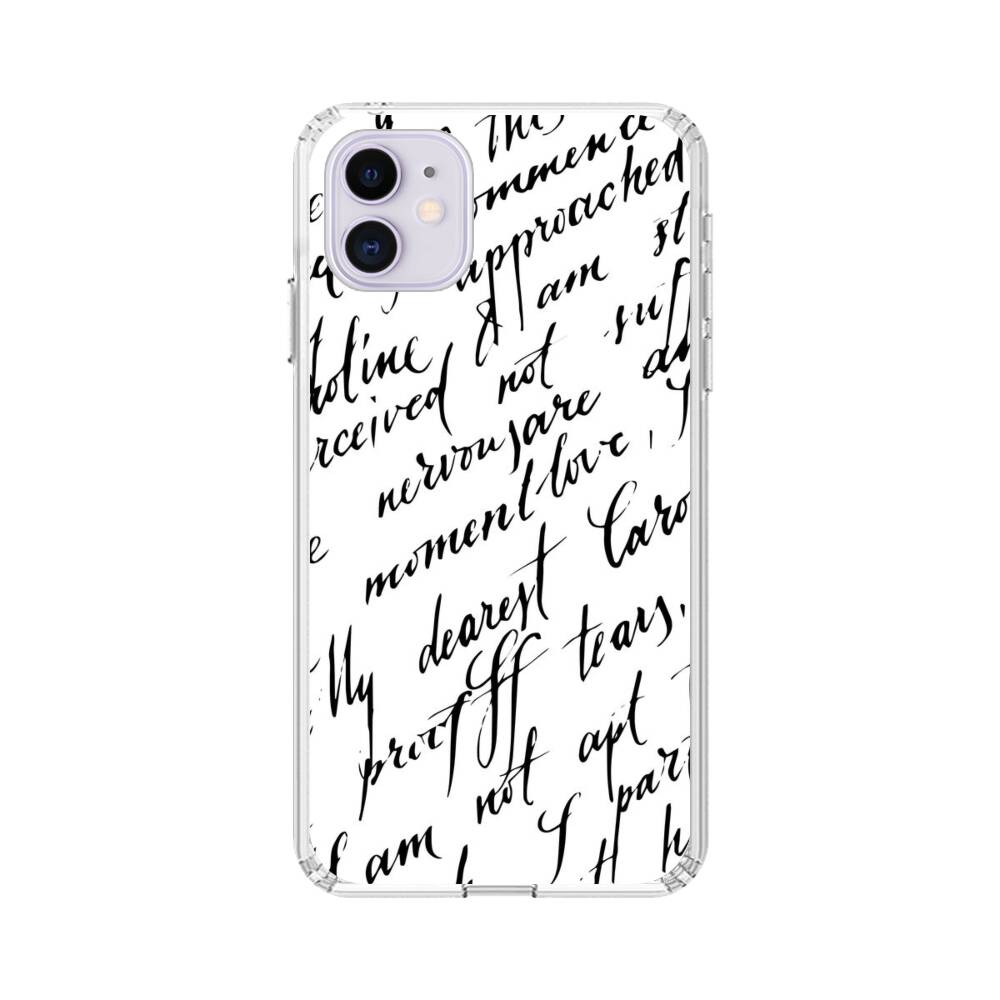 this
ommence
approached
roline I am st
rceived not suff
nervous are
e moment love, I
dearest Caro
My proof tears,
not apt
I am I par